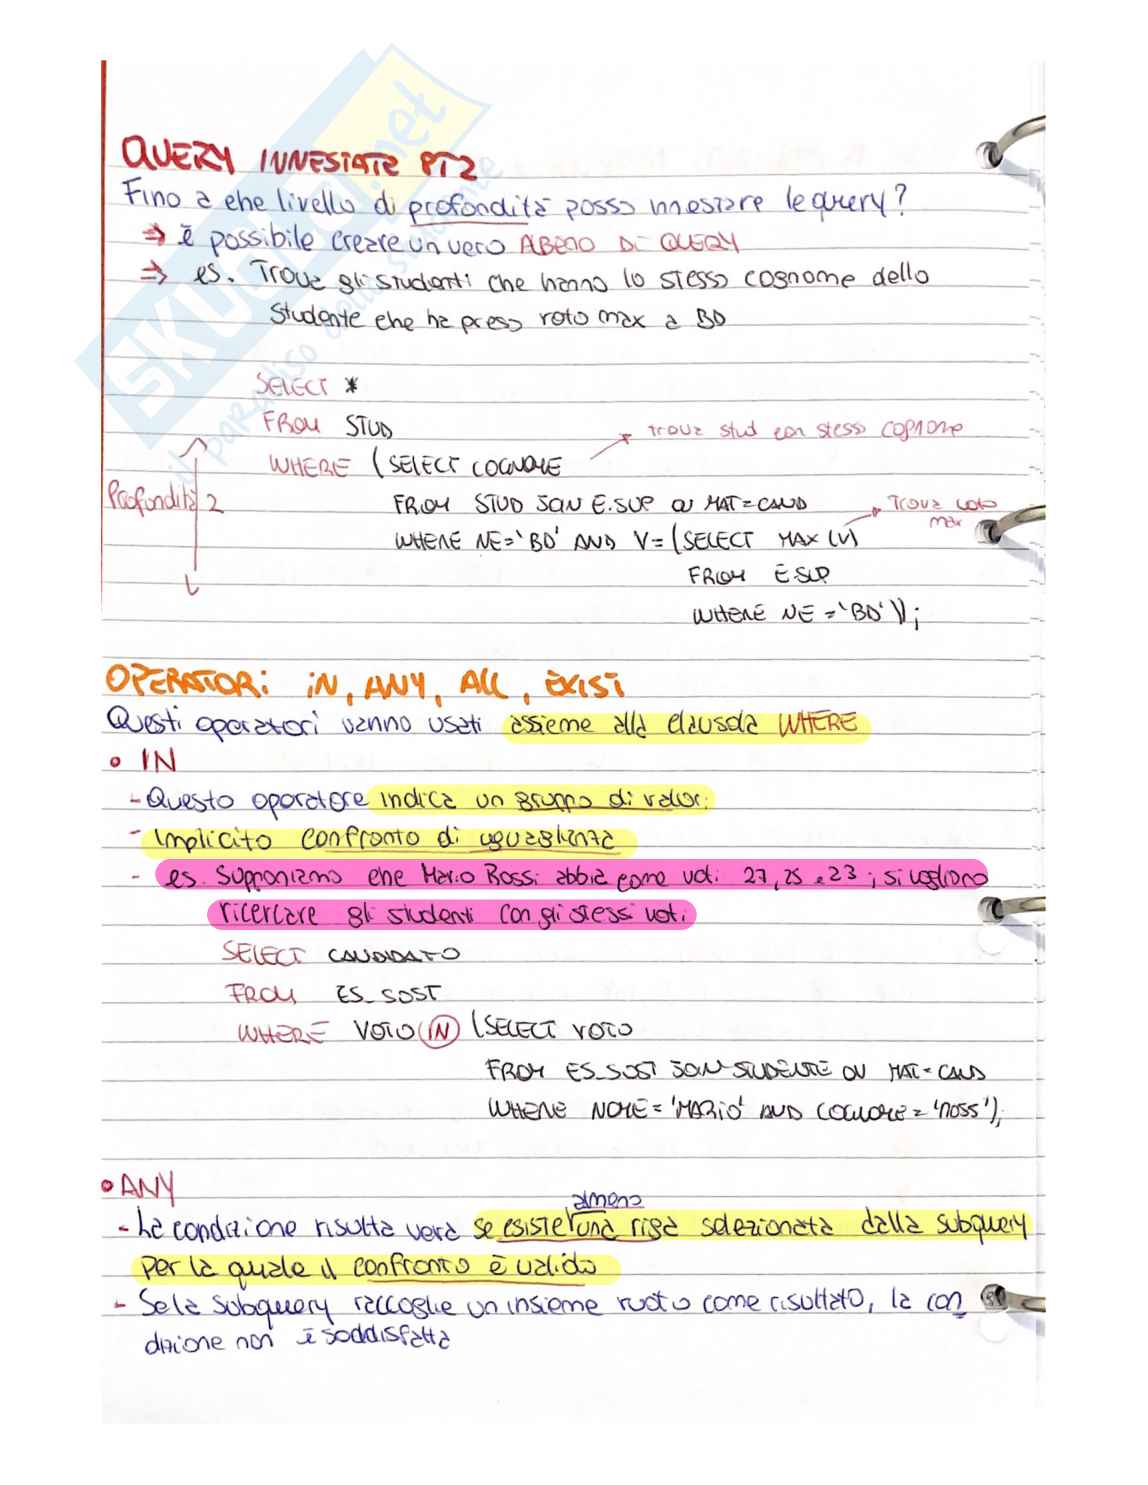 SKUOLA.net
il paradiso dello studente
QUERY INNESTATE PT2
Fino a che livello di profondità posso innestare le query?
⇒ è possibile creare un vero ALBERO DI QUERY
⇒ es. Trova gli studenti che hanno lo stesso cognome dello
studente che ha preso voto max a BD
SELECT *
FROM STUD
→ trova stud con stesso cognome
WHERE (SELECT COGNOME
Profondità 2
FROM STUD JOIN E.SUP ON MAT=CAND
→ Trova voto
max
WHERE NE='BD' AND V=(SELECT MAX(V)
FROM E.SUP
WHERE NE='BD'));
OPERATORI IN, ANY, ALL, EXIST
Questi operatori vanno usati assieme alla clausola WHERE
• IN
- Questo operatore indica un gruppo di valori
- Implicito confronto di uguaglianza
- es. Supponiamo che Mario Rossi abbia come voti 27, 25 e 23; si vogliono
ricercare gli studenti con gli stessi voti
SELECT CANDIDATO
FROM ES_SOST
WHERE VOTO IN (SELECT VOTO
FROM ES_SOST JOIN STUDENTE ON MAT=CAND
WHERE NOME='MARIO' AND COGNOME='ROSSI');
• ANY
almeno
- La condizione risulta vera se esiste una riga selezionata dalla subquery
per la quale il confronto è valido
- Se la subquery raccoglie un insieme vuoto come risultato, la con
dizione non è soddisfatta